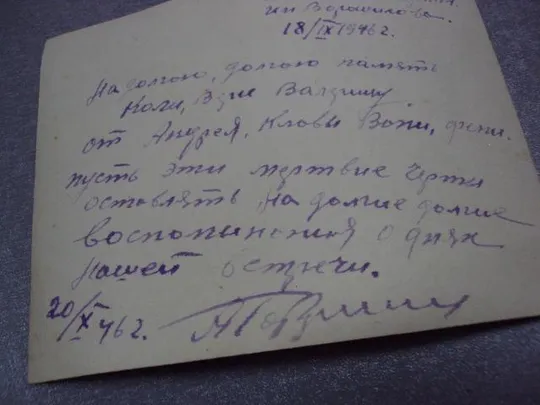 им Ворошилова.
18/IX 1946 г.
На долгою, долгою память
Коли, Вере
от Андрея, Клавы Вани,
пусть эти мертвие черты
оставлять на долгие долгие
воспоминания о днях
нашей встречи.
20/X 46 г.